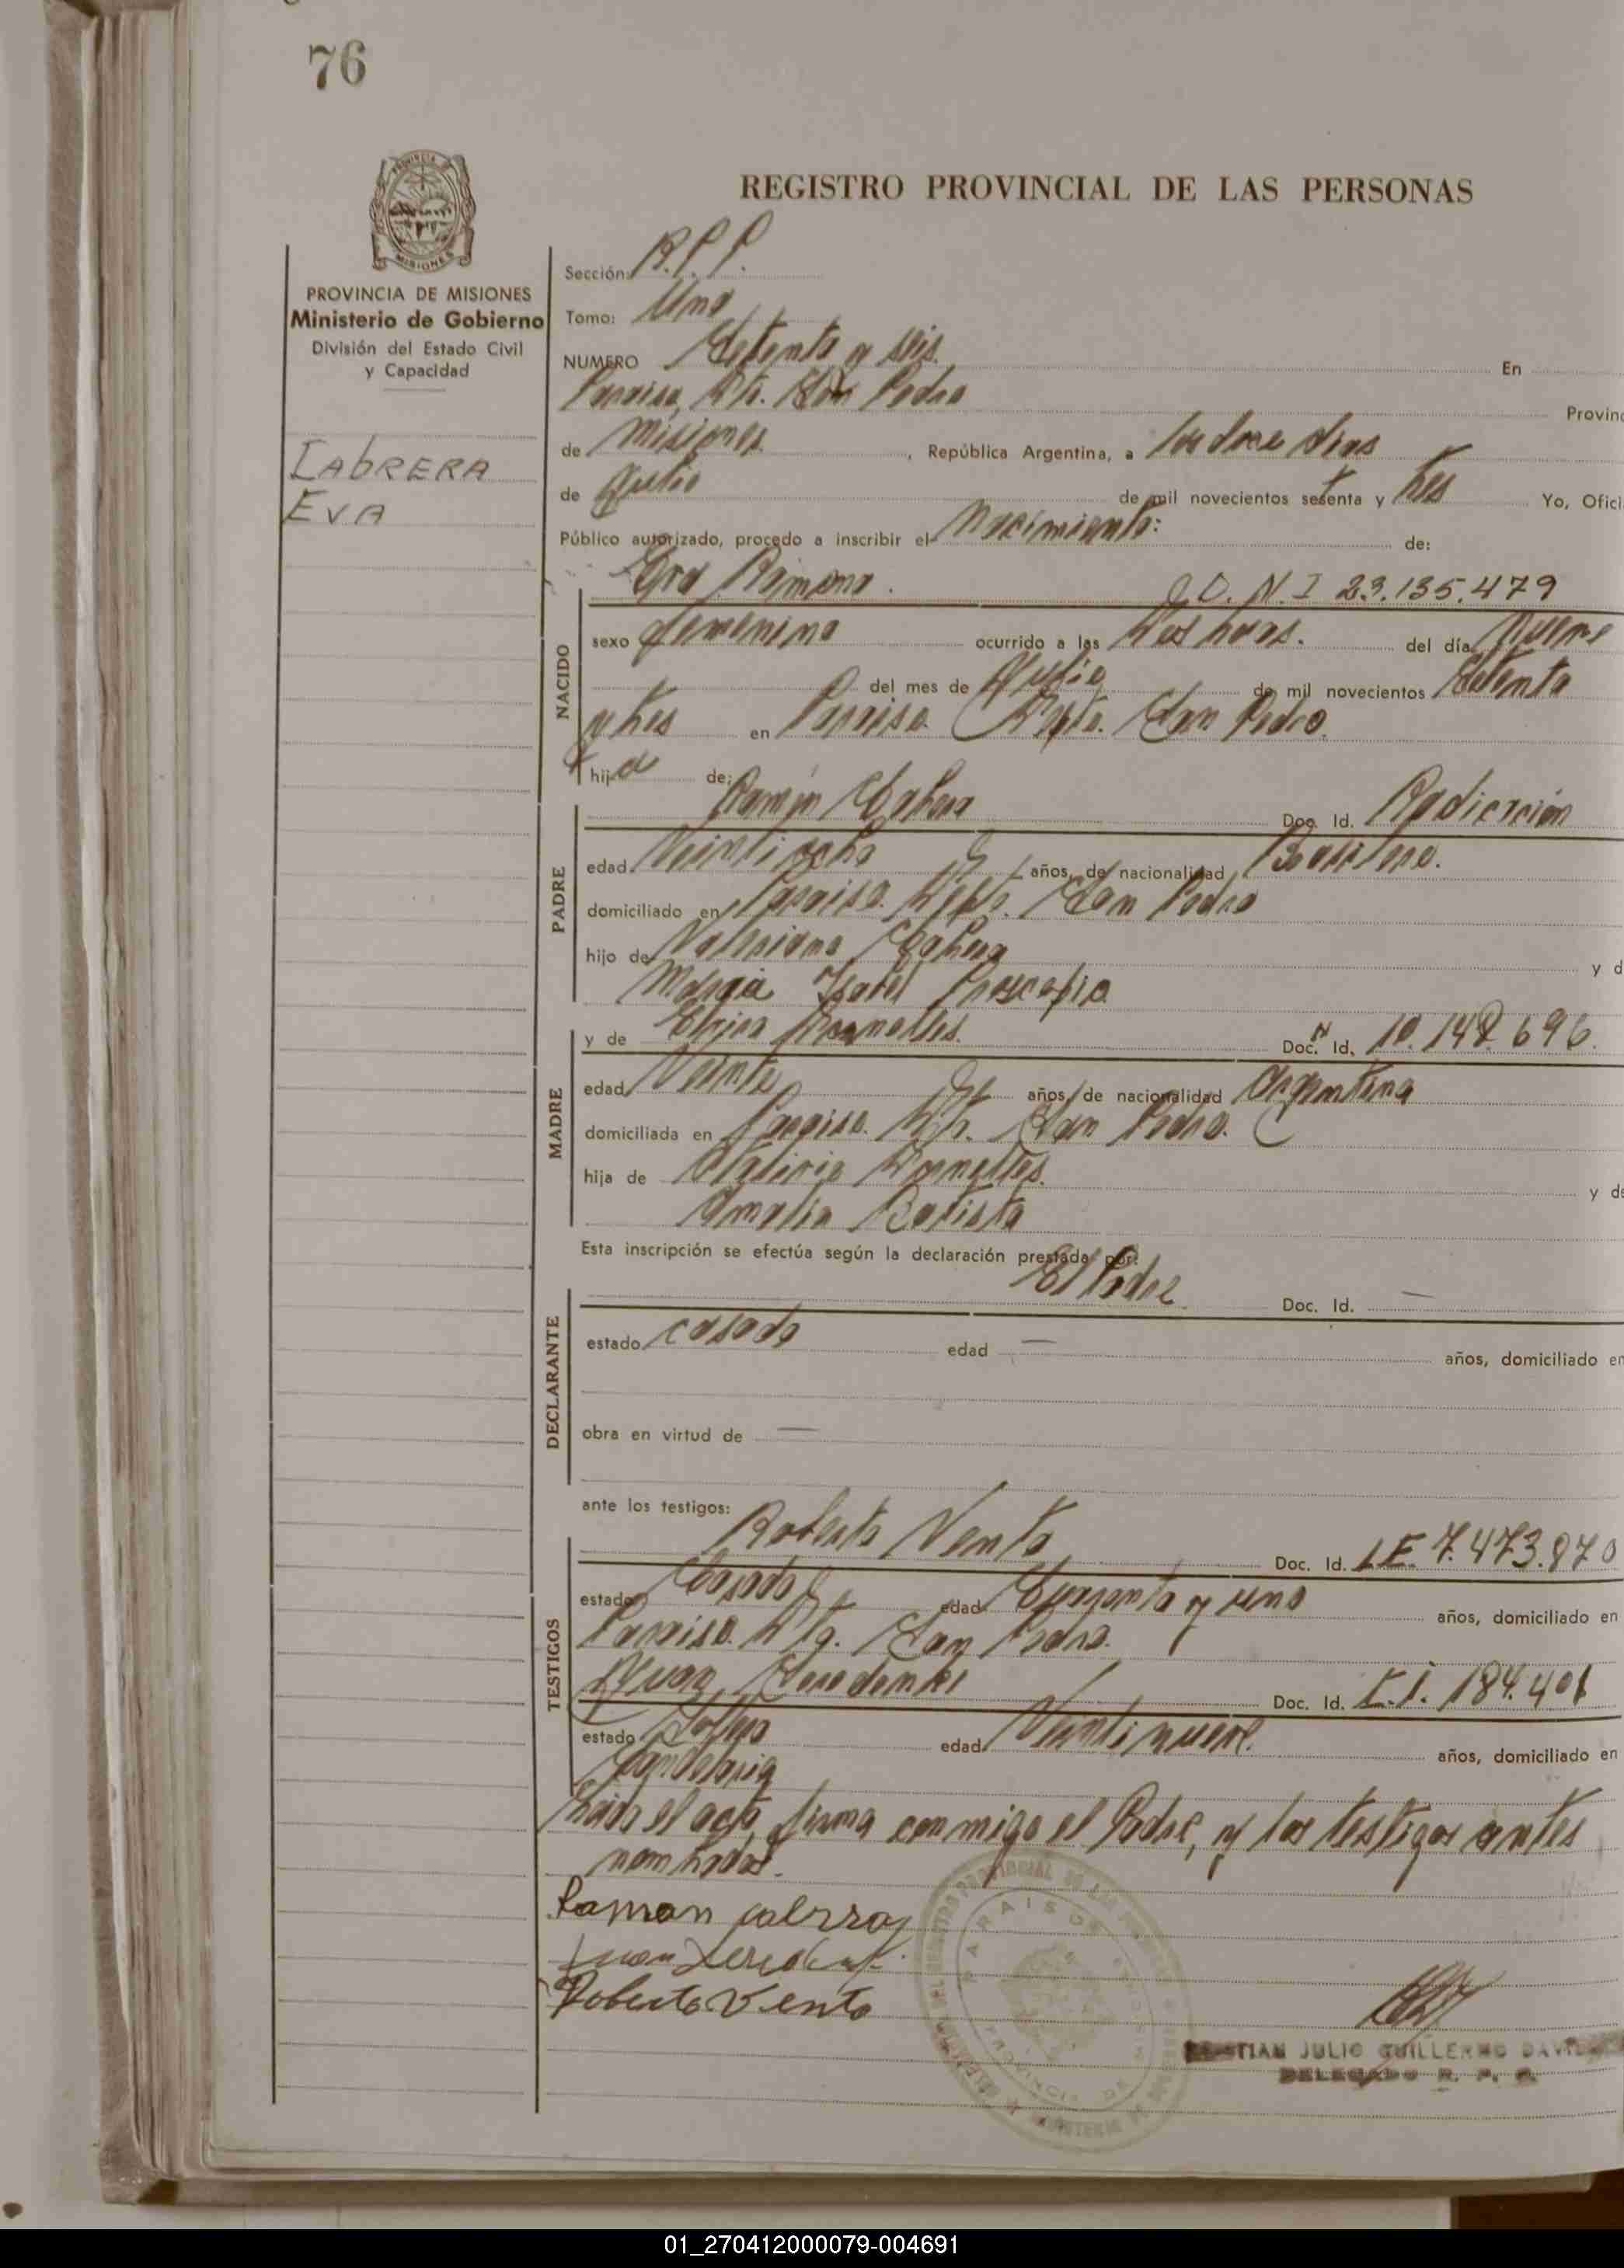 76
REGISTRO PROVINCIAL DE LAS PERSONAS
PROVINCIA DE MISIONES
Ministerio de Gobierno
División del Estado Civil
y Capacidad
CABRERA
EVA
Sección: R.P.P.
Tomo: Uno
NUMERO Setenta y seis En
Paraiso, Dto. San Pedro Provinc
de Misiones, República Argentina, a los doce dias
de Julio de mil novecientos setenta y tres Yo, Ofici
Público autorizado, procedo a inscribir el Nacimiento: de:
Eva Ramona. D.N.I 23.135.479
NACIDO
sexo femenino ocurrido a las dos horas. del día Nueve
del mes de Julio de mil novecientos setenta
y tres en Paraiso Dpto. San Pedro.
hija de:
Ramón Cabrera Doc. Id. Radicación
PADRE
edad Veintiocho años, de nacionalidad Brasilera.
domiciliado en Paraiso. Depto. San Pedro
hijo de Valeriano Cabrera y d
Maria Isabel
y de Dornelles. Doc. Id. 10.148.696.
MADRE
edad Veinte años, de nacionalidad Argentina
domiciliada en Paraiso. Dto. San Pedro.
hija de Dornelles. y de
Amalia Batista
Esta inscripción se efectúa según la declaración prestada por:
El Padre Doc. Id. —
DECLARANTE
estado casado edad — años, domiciliado en
obra en virtud de —
ante los testigos:
Roberto Vento Doc. Id. L.E. 7.473.970
TESTIGOS
estado Casado edad Cuarenta y uno años, domiciliado en
Paraiso. Dto. San Pedro.
Juan Doc. Id. C.I. 184.401
estado Soltero edad Veintinueve. años, domiciliado en
Candelaria
Leida el acta, firma conmigo el Padre, y los testigos antes
nombrados.
Ramon cabrera
Juan
Roberto Vento
JULIO GUILLERMO
DELEGADO R. P. P.
01_270412000079-004691